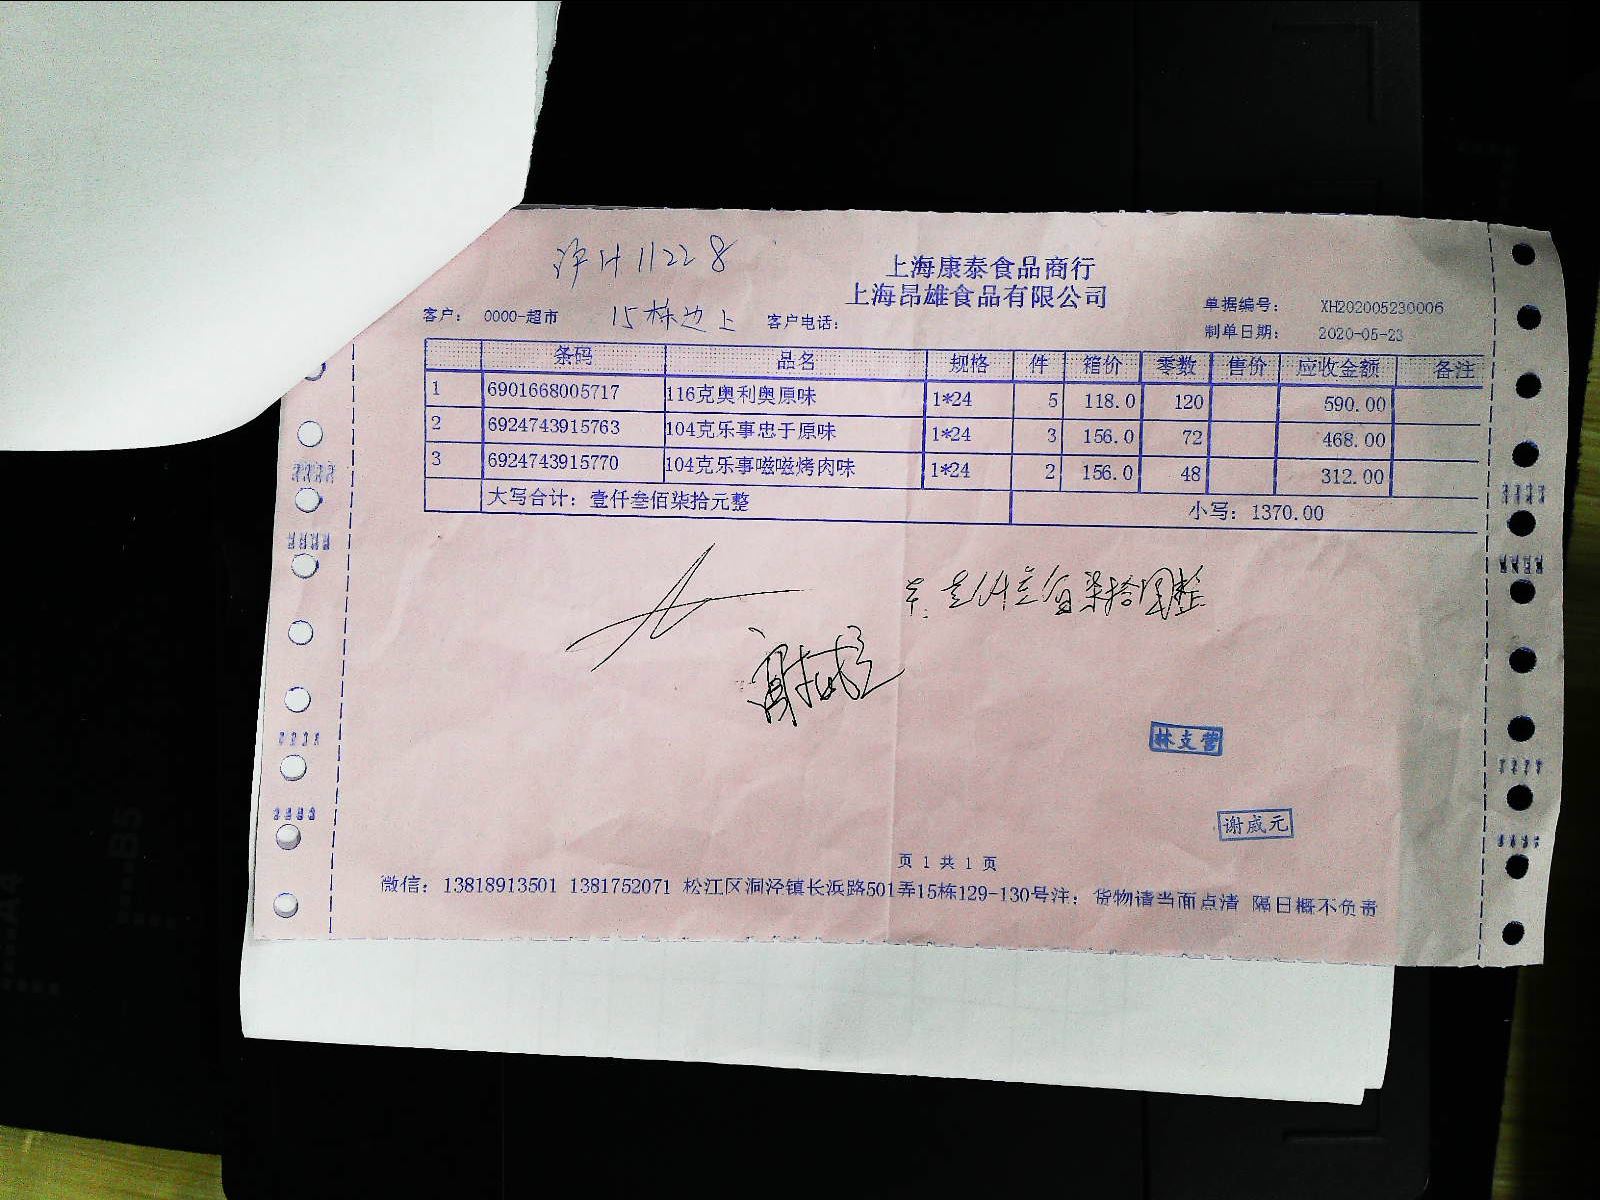 11228
上海康泰食品商行
上海昂雄食品有限公司
客户: 0000-超市 15栋边上 客户电话:
单据编号: XH202005230006
制单日期: 2020-05-23
条码 品名 规格 件 箱价 零数 售价 应收金额 备注
1 6901668005717 116克奥利奥原味 1*24 5 118.0 120 590.00
2 6924743915763 104克乐事忠于原味 1*24 3 156.0 72 468.00
3 6924743915770 104克乐事嗞嗞烤肉味 1*24 2 156.0 48 312.00
大写合计: 壹仟叁佰柒拾元整 小写: 1370.00
林支营
谢威元
页 1 共 1 页
微信: 13818913501 1381752071 松江区洞泾镇长浜路501弄15栋129-130号注: 货物请当面点清 隔日概不负责
B5
A4